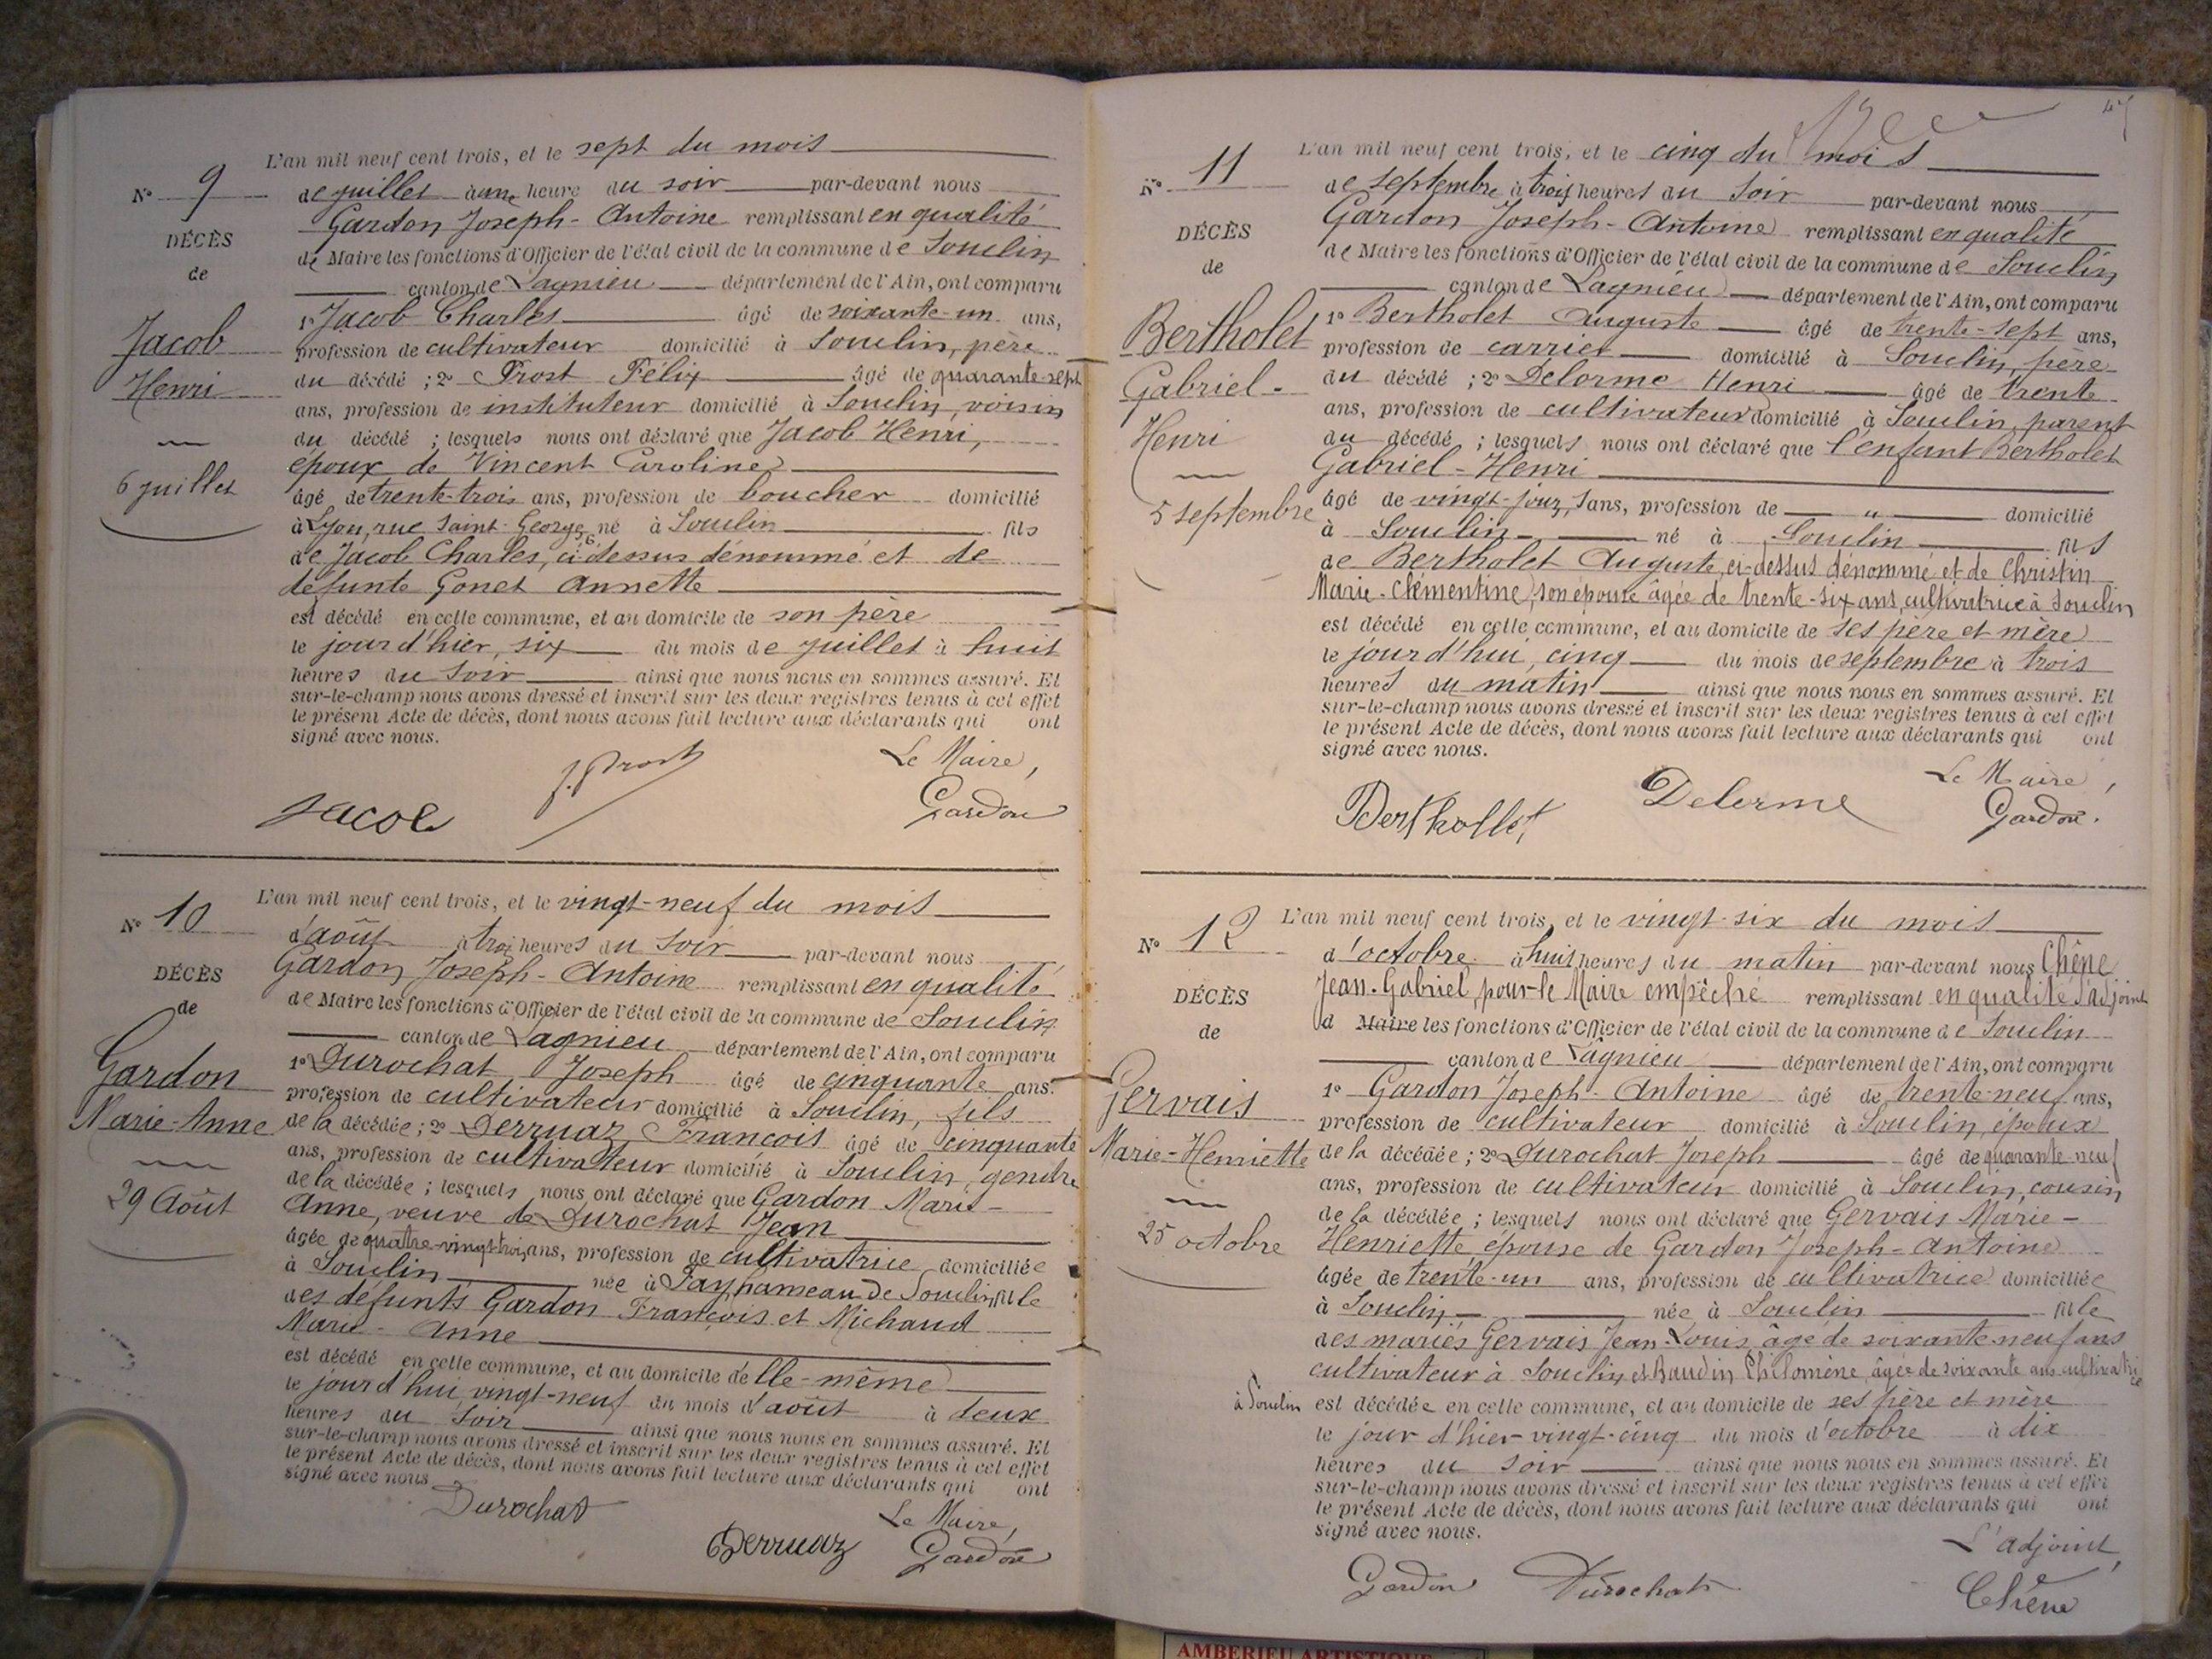 L'an mil neuf cent trois, et le sept du mois
N° 9
de juillet à une heure du soir par-devant nous
Gardon Joseph-Antoine remplissant en qualité
DÉCÈS
de Maire les fonctions d'Officier de l'état civil de la commune de Souclin
de
canton de Lagnieu département de l'Ain, ont comparu
1° Jacob Charles âgé de soixante-un ans,
Jacob
profession de cultivateur domicilié à Souclin, père
Henri
du décédé ; 2° Prost Félix âgé de quarante-sept
ans, profession de instituteur domicilié à Souclin, voisin
du décédé ; lesquels nous ont déclaré que Jacob Henri,
époux de Vincent Caroline
6 juillet
âgé de trente-trois ans, profession de boucher domicilié
à Lyon, rue Saint-Georges, 6, né à Souclin fils
de Jacob Charles, ci-dessus dénommé et de
défunte Gonet Annette
est décédé en cette commune, et au domicile de son père
le jour d'hier, six du mois de juillet à huit
heures du soir ainsi que nous nous en sommes assuré. Et
sur-le-champ nous avons dressé et inscrit sur les deux registres tenus à cet effet
le présent Acte de décès, dont nous avons fait lecture aux déclarants qui ont
signé avec nous.
Le Maire,
Jacob
F. Prost
Gardon
L'an mil neuf cent trois, et le vingt-neuf du mois
N° 10
d'août à trois heures du soir par-devant nous
Gardon Joseph-Antoine remplissant en qualité
DÉCÈS
de Maire les fonctions d'Officier de l'état civil de la commune de Souclin
de
canton de Lagnieu département de l'Ain, ont comparu
1° Durochat Joseph âgé de cinquante ans.
Gardon
profession de cultivateur domicilié à Souclin, fils
Marie-Anne
de la décédée ; 2° Derruaz François âgé de cinquante
ans, profession de cultivateur domicilié à Souclin, gendre
de la décédée ; lesquels nous ont déclaré que Gardon Marie-
29 Août
Anne, veuve de Durochat Jean
âgée de quatre-vingt-trois ans, profession de cultivatrice domiciliée
à Souclin née à Soy, hameau de Souclin, fille
des défunts Gardon François et Michaud
Marie-Anne
est décédé en cette commune, et au domicile d'elle-même
le jour d'hui, vingt-neuf du mois d'août à deux
heures du soir ainsi que nous nous en sommes assuré. Et
sur-le-champ nous avons dressé et inscrit sur les deux registres tenus à cet effet
le présent Acte de décès, dont nous avons fait lecture aux déclarants qui ont
signé avec nous.
Durochat
Le Maire,
Derruaz
Gardon
L'an mil neuf cent trois, et le cinq du mois
N° 11
de septembre à trois heures du soir par-devant nous
Gardon Joseph-Antoine remplissant en qualité
DÉCÈS
de Maire les fonctions d'Officier de l'état civil de la commune de Souclin
de
canton de Lagnieu département de l'Ain, ont comparu
1° Bertholet Auguste âgé de trente-sept ans,
Bertholet
profession de carrier domicilié à Souclin, père
Gabriel-
du décédé ; 2° Delorme Henri âgé de trente
ans, profession de cultivateur domicilié à Souclin, parent
Henri
du décédé ; lesquels nous ont déclaré que l'enfant Bertholet
Gabriel-Henri
5 septembre
âgé de vingt-jours, ans, profession de " domicilié
à Souclin né à Souclin fils
de Bertholet Auguste, ci-dessus dénommé et de Christin
Marie-Clémentine, son épouse âgée de trente-six ans, cultivatrice à Souclin
est décédé en cette commune, et au domicile de ses père et mère
le jour d'hui, cinq du mois de septembre à trois
heures du matin ainsi que nous nous en sommes assuré. Et
sur-le-champ nous avons dressé et inscrit sur les deux registres tenus à cet effet
le présent Acte de décès, dont nous avons fait lecture aux déclarants qui ont
signé avec nous.
Le Maire,
Berthollet
Delorme
Gardon.
L'an mil neuf cent trois, et le vingt-six du mois
N° 12
d'octobre à huit heures du matin par-devant nous Chêne
Jean-Gabriel, pour le Maire empêché remplissant en qualité d'adjoint
DÉCÈS
d Maire les fonctions d'Officier de l'état civil de la commune de Souclin
de
canton de Lagnieu département de l'Ain, ont comparu
1° Gardon Joseph-Antoine âgé de trente-neuf ans,
Gervais
profession de cultivateur domicilié à Souclin, époux
Marie-Henriette
de la décédée ; 2° Durochat Joseph âgé de quarante-neuf
ans, profession de cultivateur domicilié à Souclin, cousin
de la décédée ; lesquels nous ont déclaré que Gervais Marie-
25 octobre
Henriette, épouse de Gardon Joseph-Antoine
âgée de trente-un ans, profession de cultivatrice domiciliée
à Souclin née à Souclin fille
des mariés Gervais Jean-Louis, âgé de soixante-neuf ans
cultivateur à Souclin et Baudin Philomène, âgée de soixante ans cultivatrice
à Souclin
est décédée en cette commune, et au domicile de ses père et mère
le jour d'hier vingt-cinq du mois d'octobre à dix
heures du soir ainsi que nous nous en sommes assuré. Et
sur-le-champ nous avons dressé et inscrit sur les deux registres tenus à cet effet
le présent Acte de décès, dont nous avons fait lecture aux déclarants qui ont
signé avec nous.
L'adjoint,
Gardon
Durochat
Chêne
AMBERIEU ARTISTIQUE